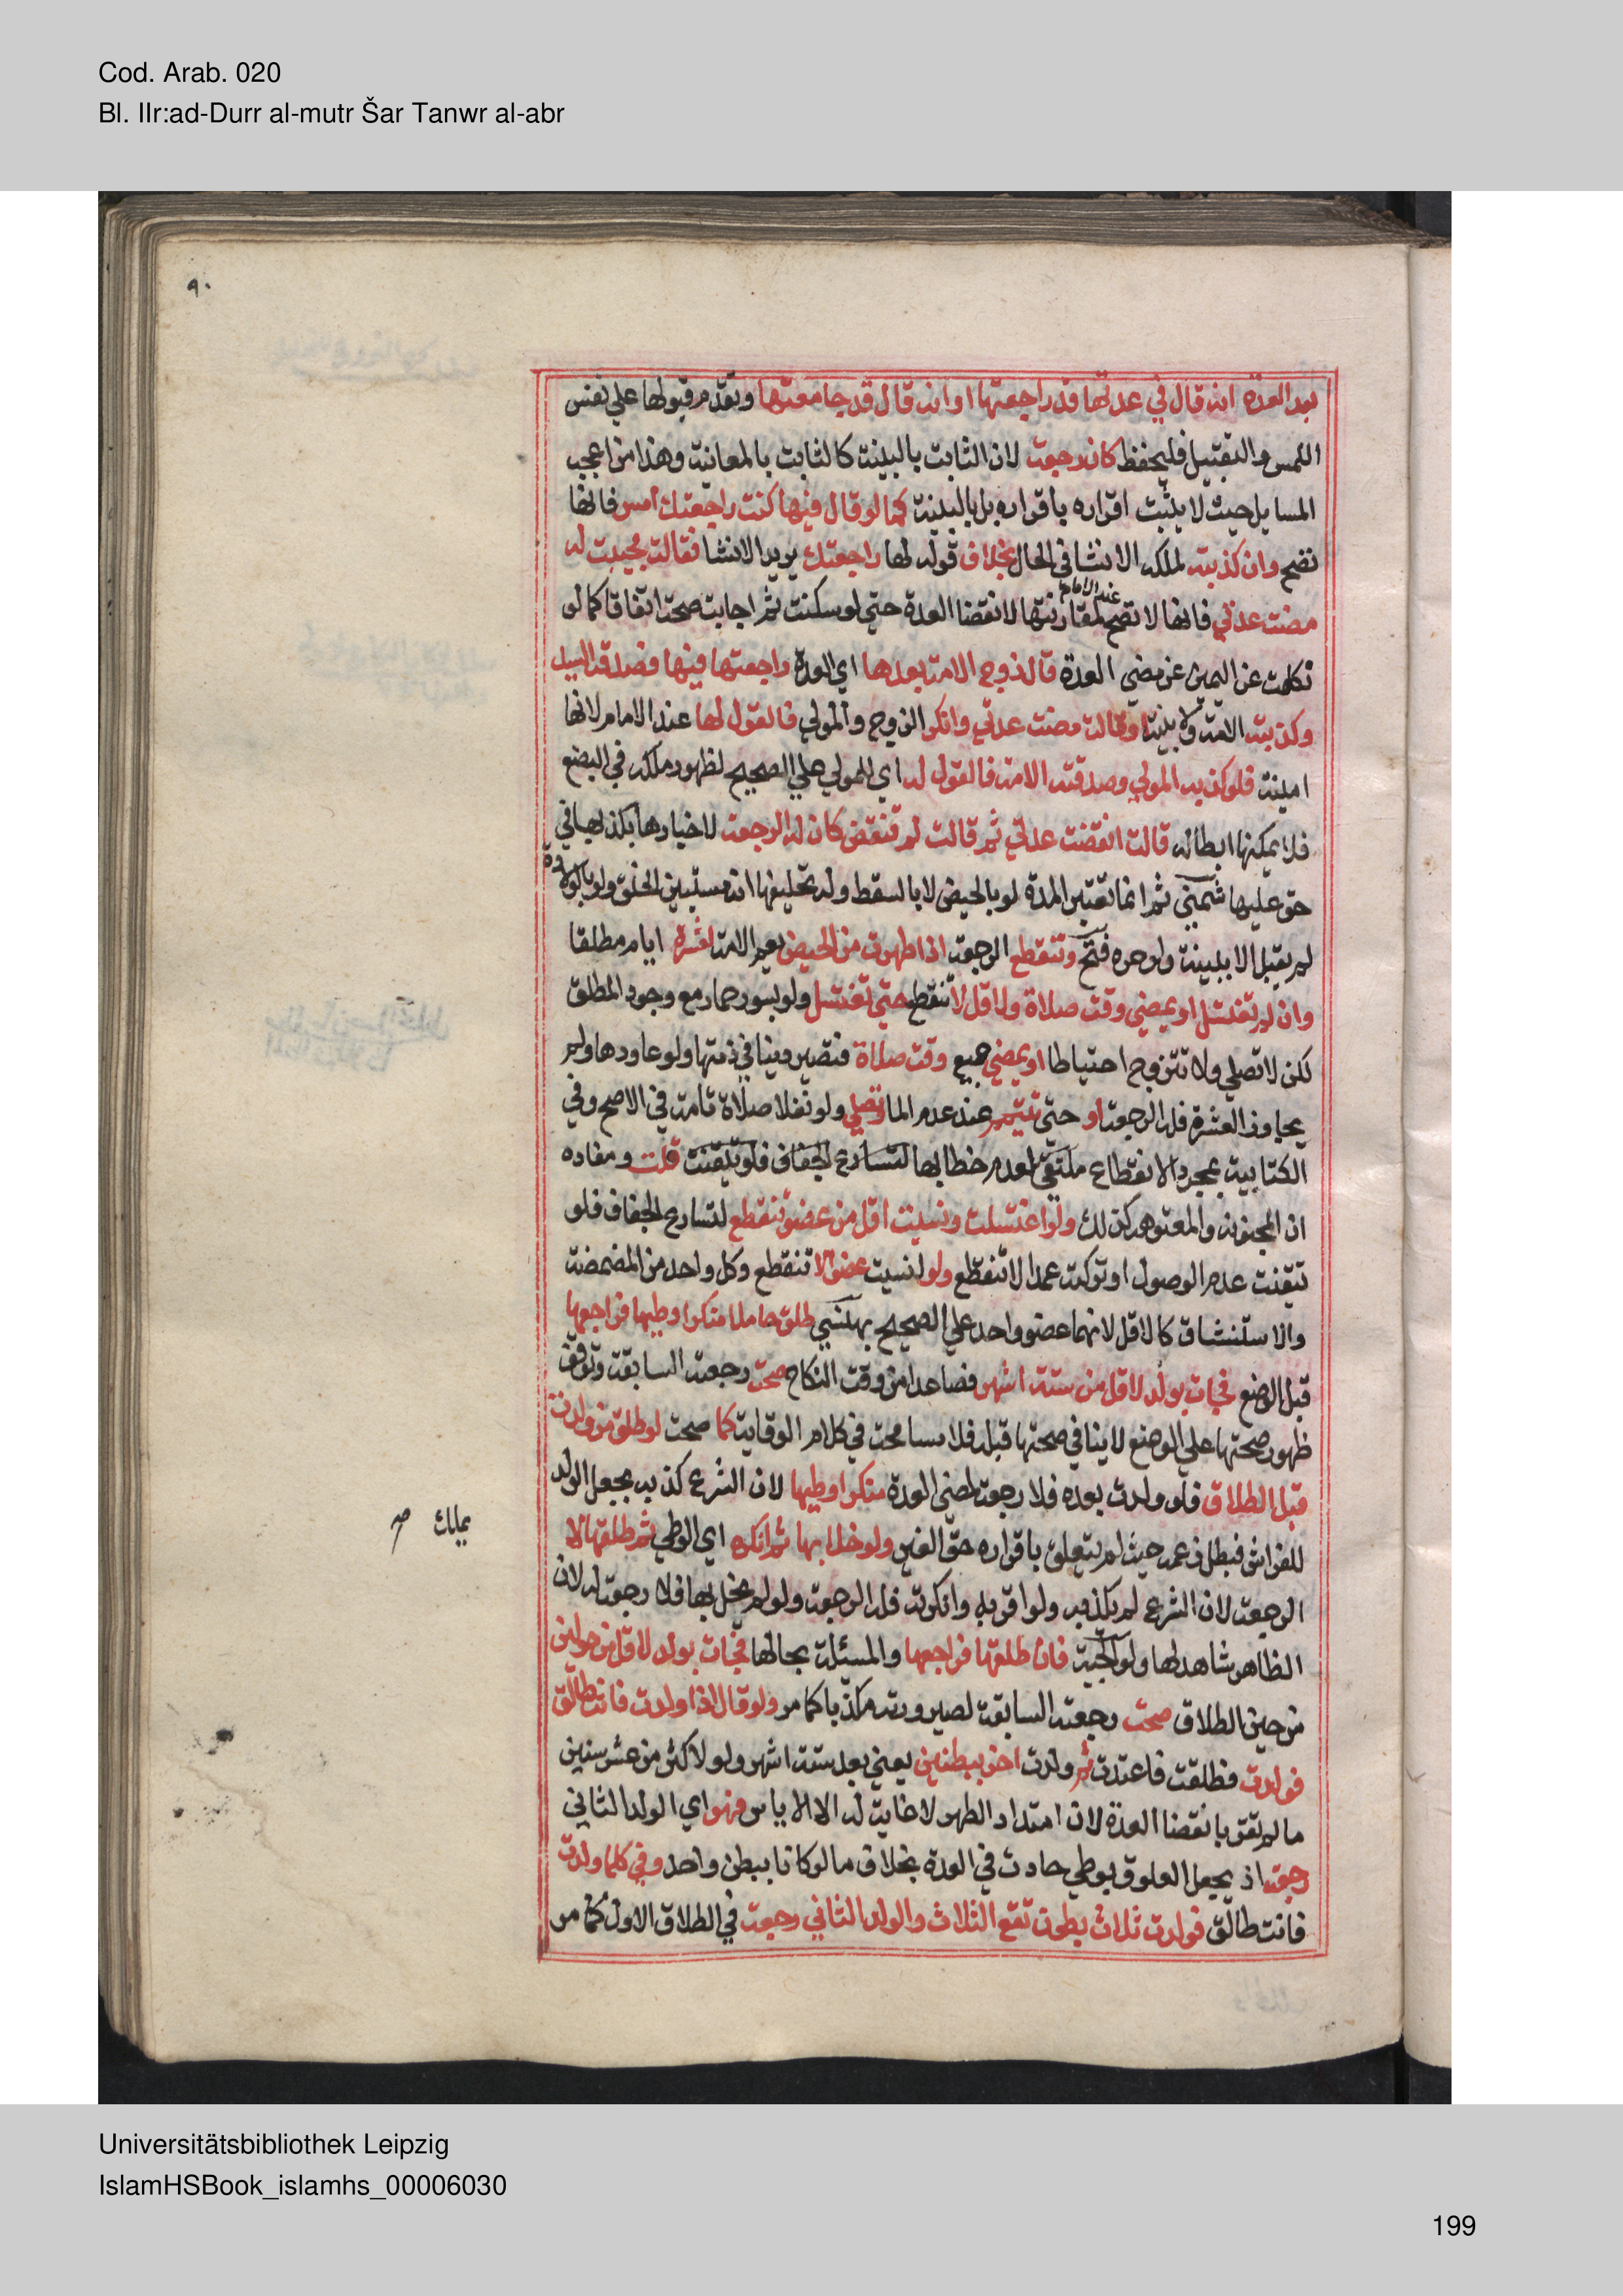 Cod. Arab. 020
Bl. IIr:ad-Durr al-mutr Šar Tanwr al-abr
٩٠
بعد العدة انه قال في عدتها قد راجعتها او انه قال قد جامعتها وتقدم قبولها علي نفس
اللمس والتقبيل فليحفظ كان رجعة لان الثابت بالبينة كالثابت بالمعاينة وهذا من اعجب
المسايل حيث لا يثبت اقراره باقراره بل بالبينة كما لو قال فيها كنت راجعتك امس فانها
تصح وان كذبته لملكه الانشا في الحال بخلاف قوله لها راجعتك يريد الانشا فقالت مجيبة له
مضت عدتي فانها لا تصح عند الامام لمقارنتها لانقضا العدة حتي لو سكتت ثم اجابت صحت اتفاقا كما لو
نكلت عن اليمين عن مضي العدة قال زوج الامة بعدها اي العدة راجعتها فيها فصدقه السيد
وكذبته الامة ولا بينة او قالت مضت عدتي وانكر الزوج والمولي فالقول لها عند الامام لانها
امينة فلو كذبه المولي وصدقته الامة فالقول له اي للمولي علي الصحيح لظهور ملكه في البضع
فلا يمكنها ابطاله قالت انقضت عدتي ثم قالت لم تنقض كان له الرجعة لاخبارها بكذبها في
حق عليها شمني ثم انما تعتبر المدة لو بالحيض لا بالسقط وله تحليفها انه مستبين الخلق ولو بالولادة
لم يقبل الا ببينة ولو حرة فتح وتنقطع الرجعة اذا طهرت من الحيض يعم الامة لعشرة ايام مطلقا
وان لم تغتسل او يمضي وقت صلاة ولاقل لا تنقطع حتي تغتسل ولو بسور حمار مع وجود المطلق
لكن لا تصلي ولا تتزوج احتياطا او يمضي جميع وقت صلاة فتصير دينا في ذمتها ولو عاودها ولم
يجاوز العشرة فله الرجعة او حتي تتيمم عند عدم الما وتصلي ولو نفلا صلاة تامة في الاصح وفي
الكتابية بمجرد الانقطاع ملتقي لعدم خطابها لتسارع الجفاف فلو تيقنت قلت ومفاده
ان المجنونة والمعتوهة كذلك ولو اغتسلت ونسيت اقل من عضو تنقطع لتسارع الجفاف فلو
تيقنت عدم الوصول او تركته عمدا لا تنقطع ولو نسيت عضوا لا تنقطع وكل واحد من المضمضة
والاستنشاق كالاقل لانهما عضو واحد علي الصحيح بهنسي طلق حاملا منكرا وطيها فراجعها
قبل الوضع فجات بولد لاقل من ستة اشهر فصاعدا من وقت النكاح صحت رجعته السابقة وتوقف
ظهور صحتها علي الوضع لا ينافي صحتها قبله فلا مسامحة في كلام الوقاية كما صحت لو طلق من ولدت
قبل الطلاق فلو ولدت بعده فلا رجعة لمضي العدة منكرا وطيها لان الشرع كذبه بجعل الولد
للفراش فبطل زعمه حيث لم يتعلق باقراره حق الغير ولو خلا بها ثم انكره اي الوطي ثم طلقها لا
يملك صح
الرجعة لان الشرع لم يكذبه ولو اقر به وانكرته فله الرجعة ولو لم يخل بها فلا رجعة له لان
الظاهر شاهد لها ولوالجية فان طلقها فراجعها والمسئلة بحالها فجات بولد لاقل من حولين
من حين الطلاق صحت رجعته السابقة لصيرورته مكذبا كما مر ولو قال اذا ولدت فانت طالق
فولدت فطلقت فاعتدت ثم ولدت اخر ببطنين يعني بعد ستة اشهر ولو لاكثر من عشر سنين
ما لم تقر بانقضا العدة لان امتداد الطهر لا غاية له الا الاياس فهو اي الولد الثاني
رجعة اذ يجعل العلوق بوطي حادث في العدة بخلاف ما لو كانا ببطن واحد وفي كلما ولدت
فانت طالق فولدت ثلاث بطون تقع الثلاث والولد الثاني رجعة في الطلاق الاول كما مر
Universitätsbibliothek Leipzig
IslamHSBook_islamhs_00006030
199